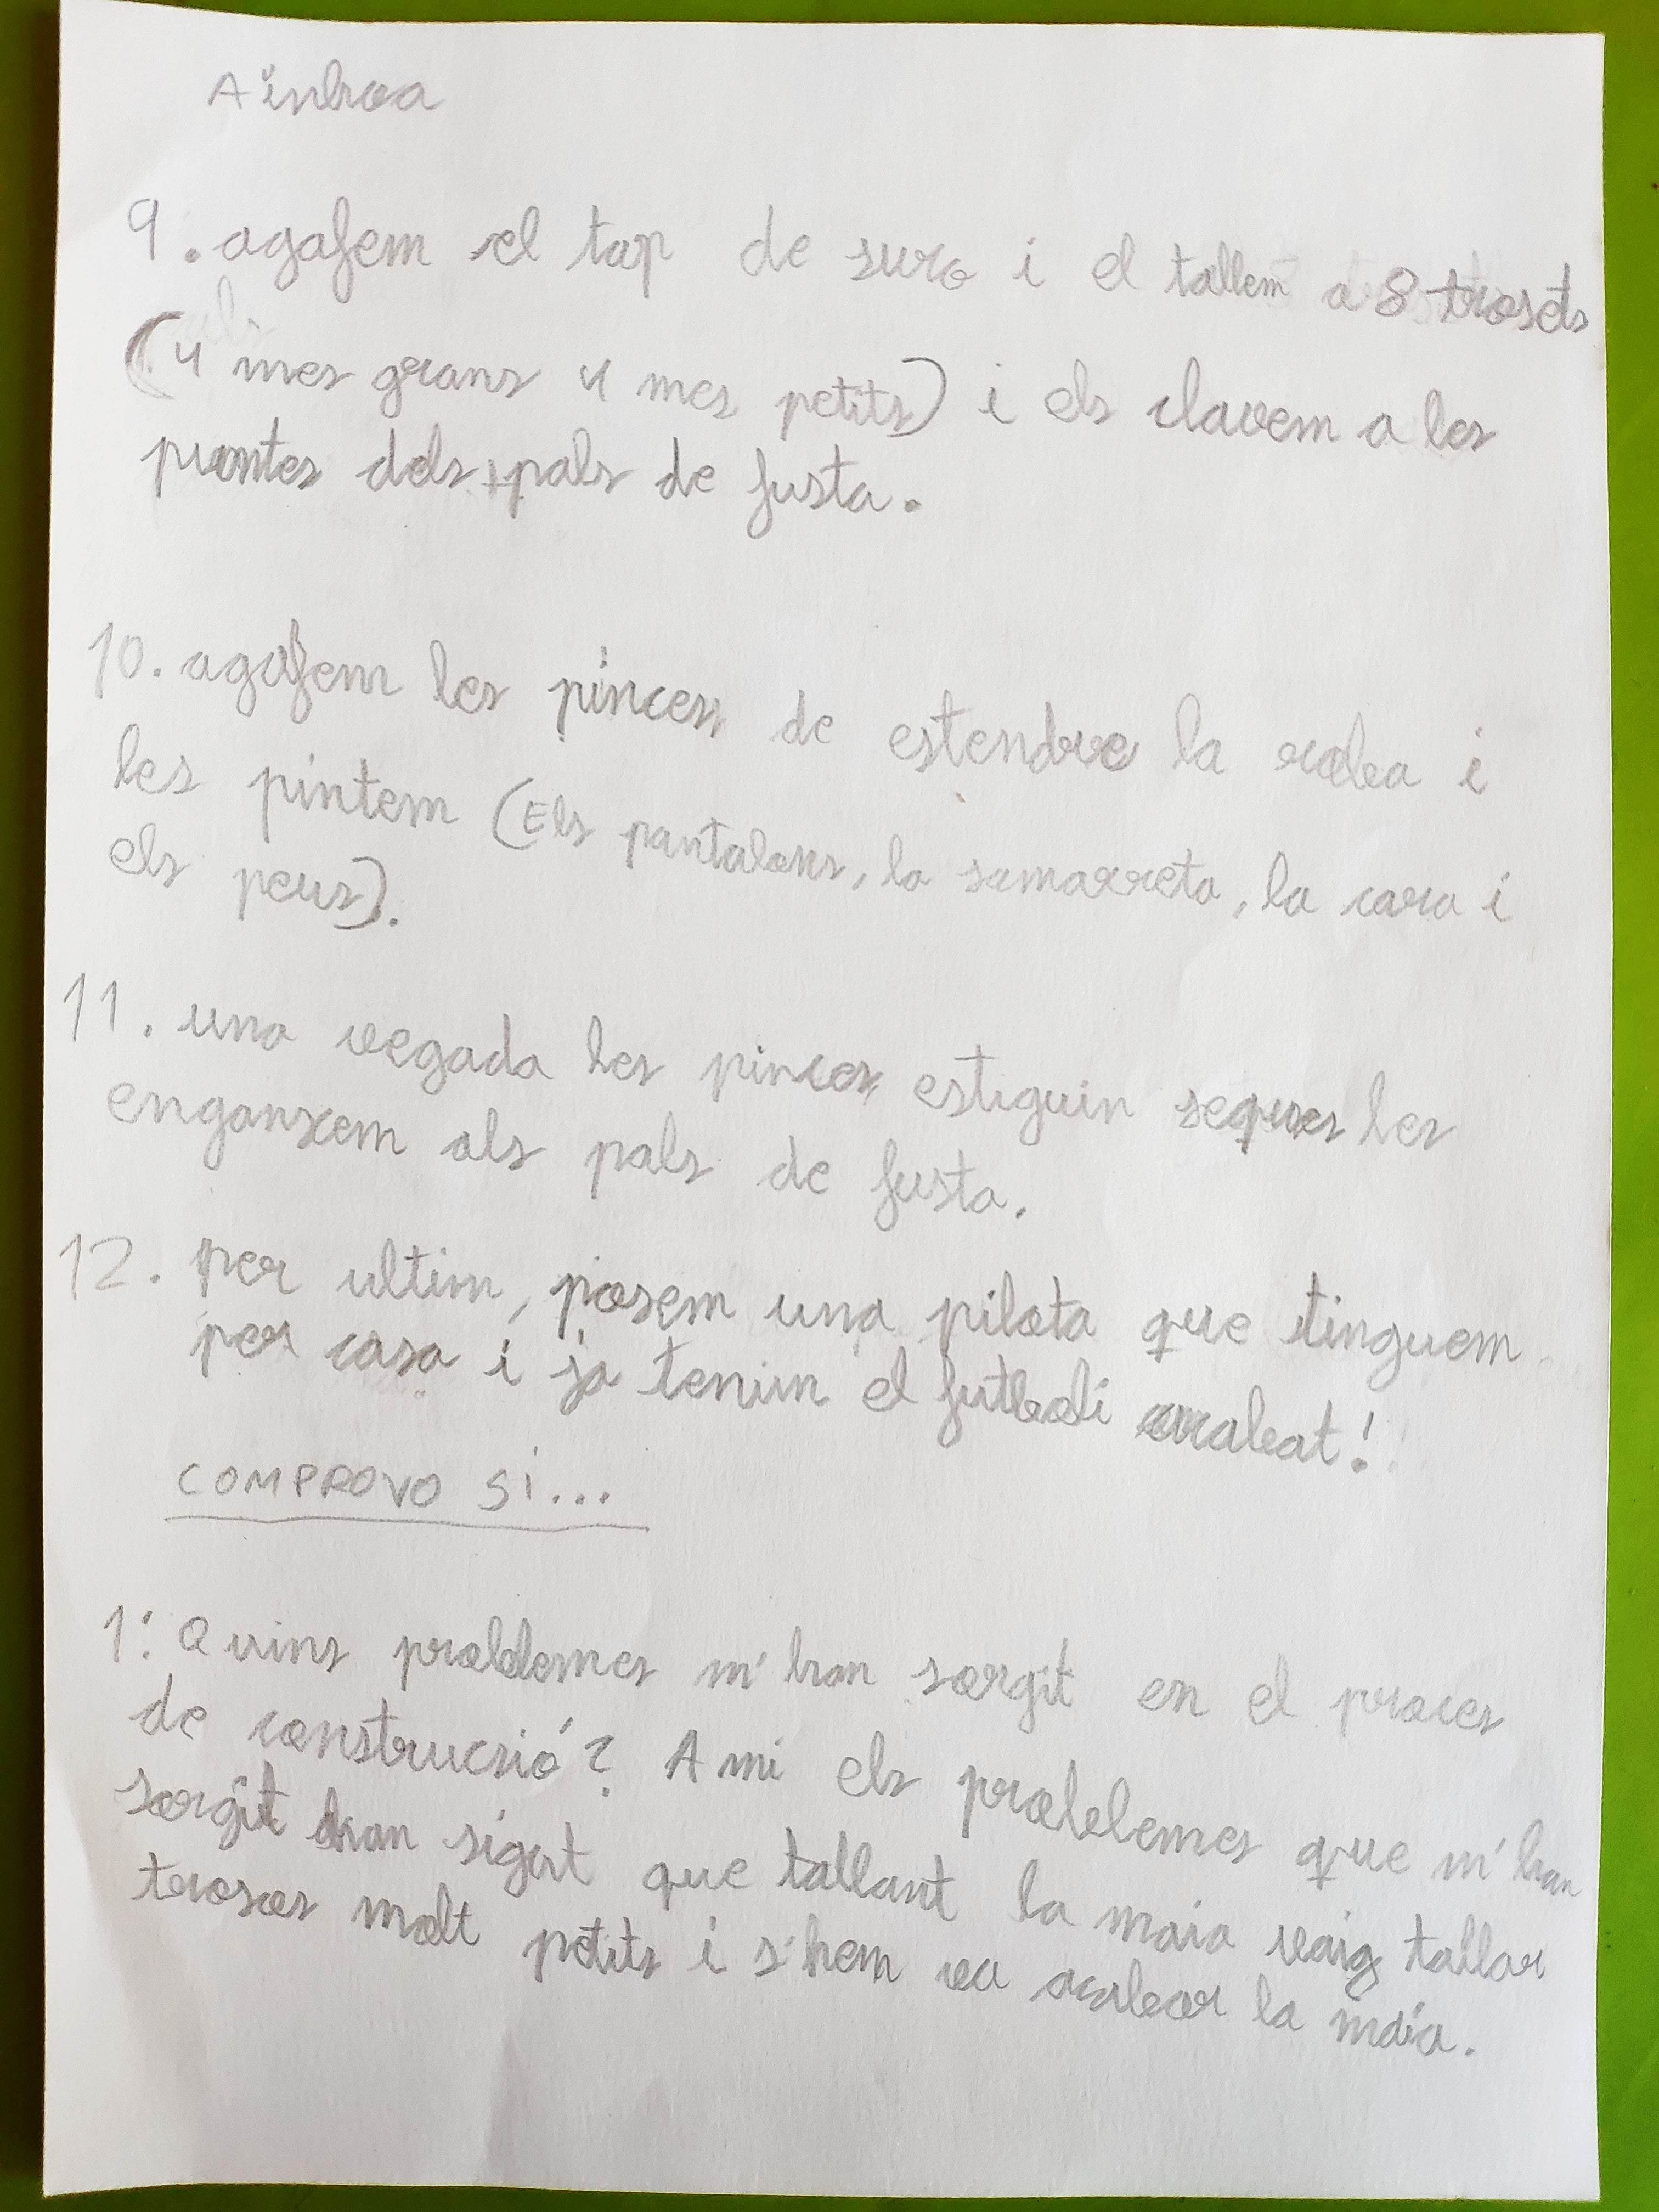 Ainhoa
9. agafem el tap de suro i el tallem a 8 trosets
(4 mes grans 4 mes petits) i els clavem a les
puntes dels pals de fusta.
10. agafem les pinces de estendre la roba i
les pintem (Els pantalons, la samarreta, la cara i
els peus).
11. una vegada les pinces estiguin seques les
enganxem als pals de fusta.
12. per ultim, posem una pilota que tinguem
per casa i ja tenim el futboli acabat!
COMPROVO SI...
1. Quins problemes m'han sorgit en el proces
de construcsió? A mi els problemes que m'han
sorgit han sigut que tallant la maia vaig tallar
trosos molt petits i s'hem va acabar la maia.